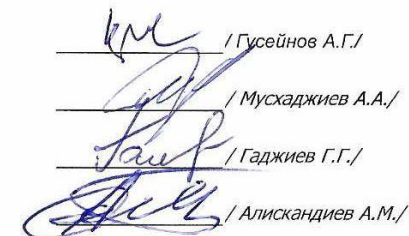 / Гусейнов А.Г./
/ Мусхаджиев А.А./
/ Гаджиев Г.Г./
/ Алискандиев А.М./